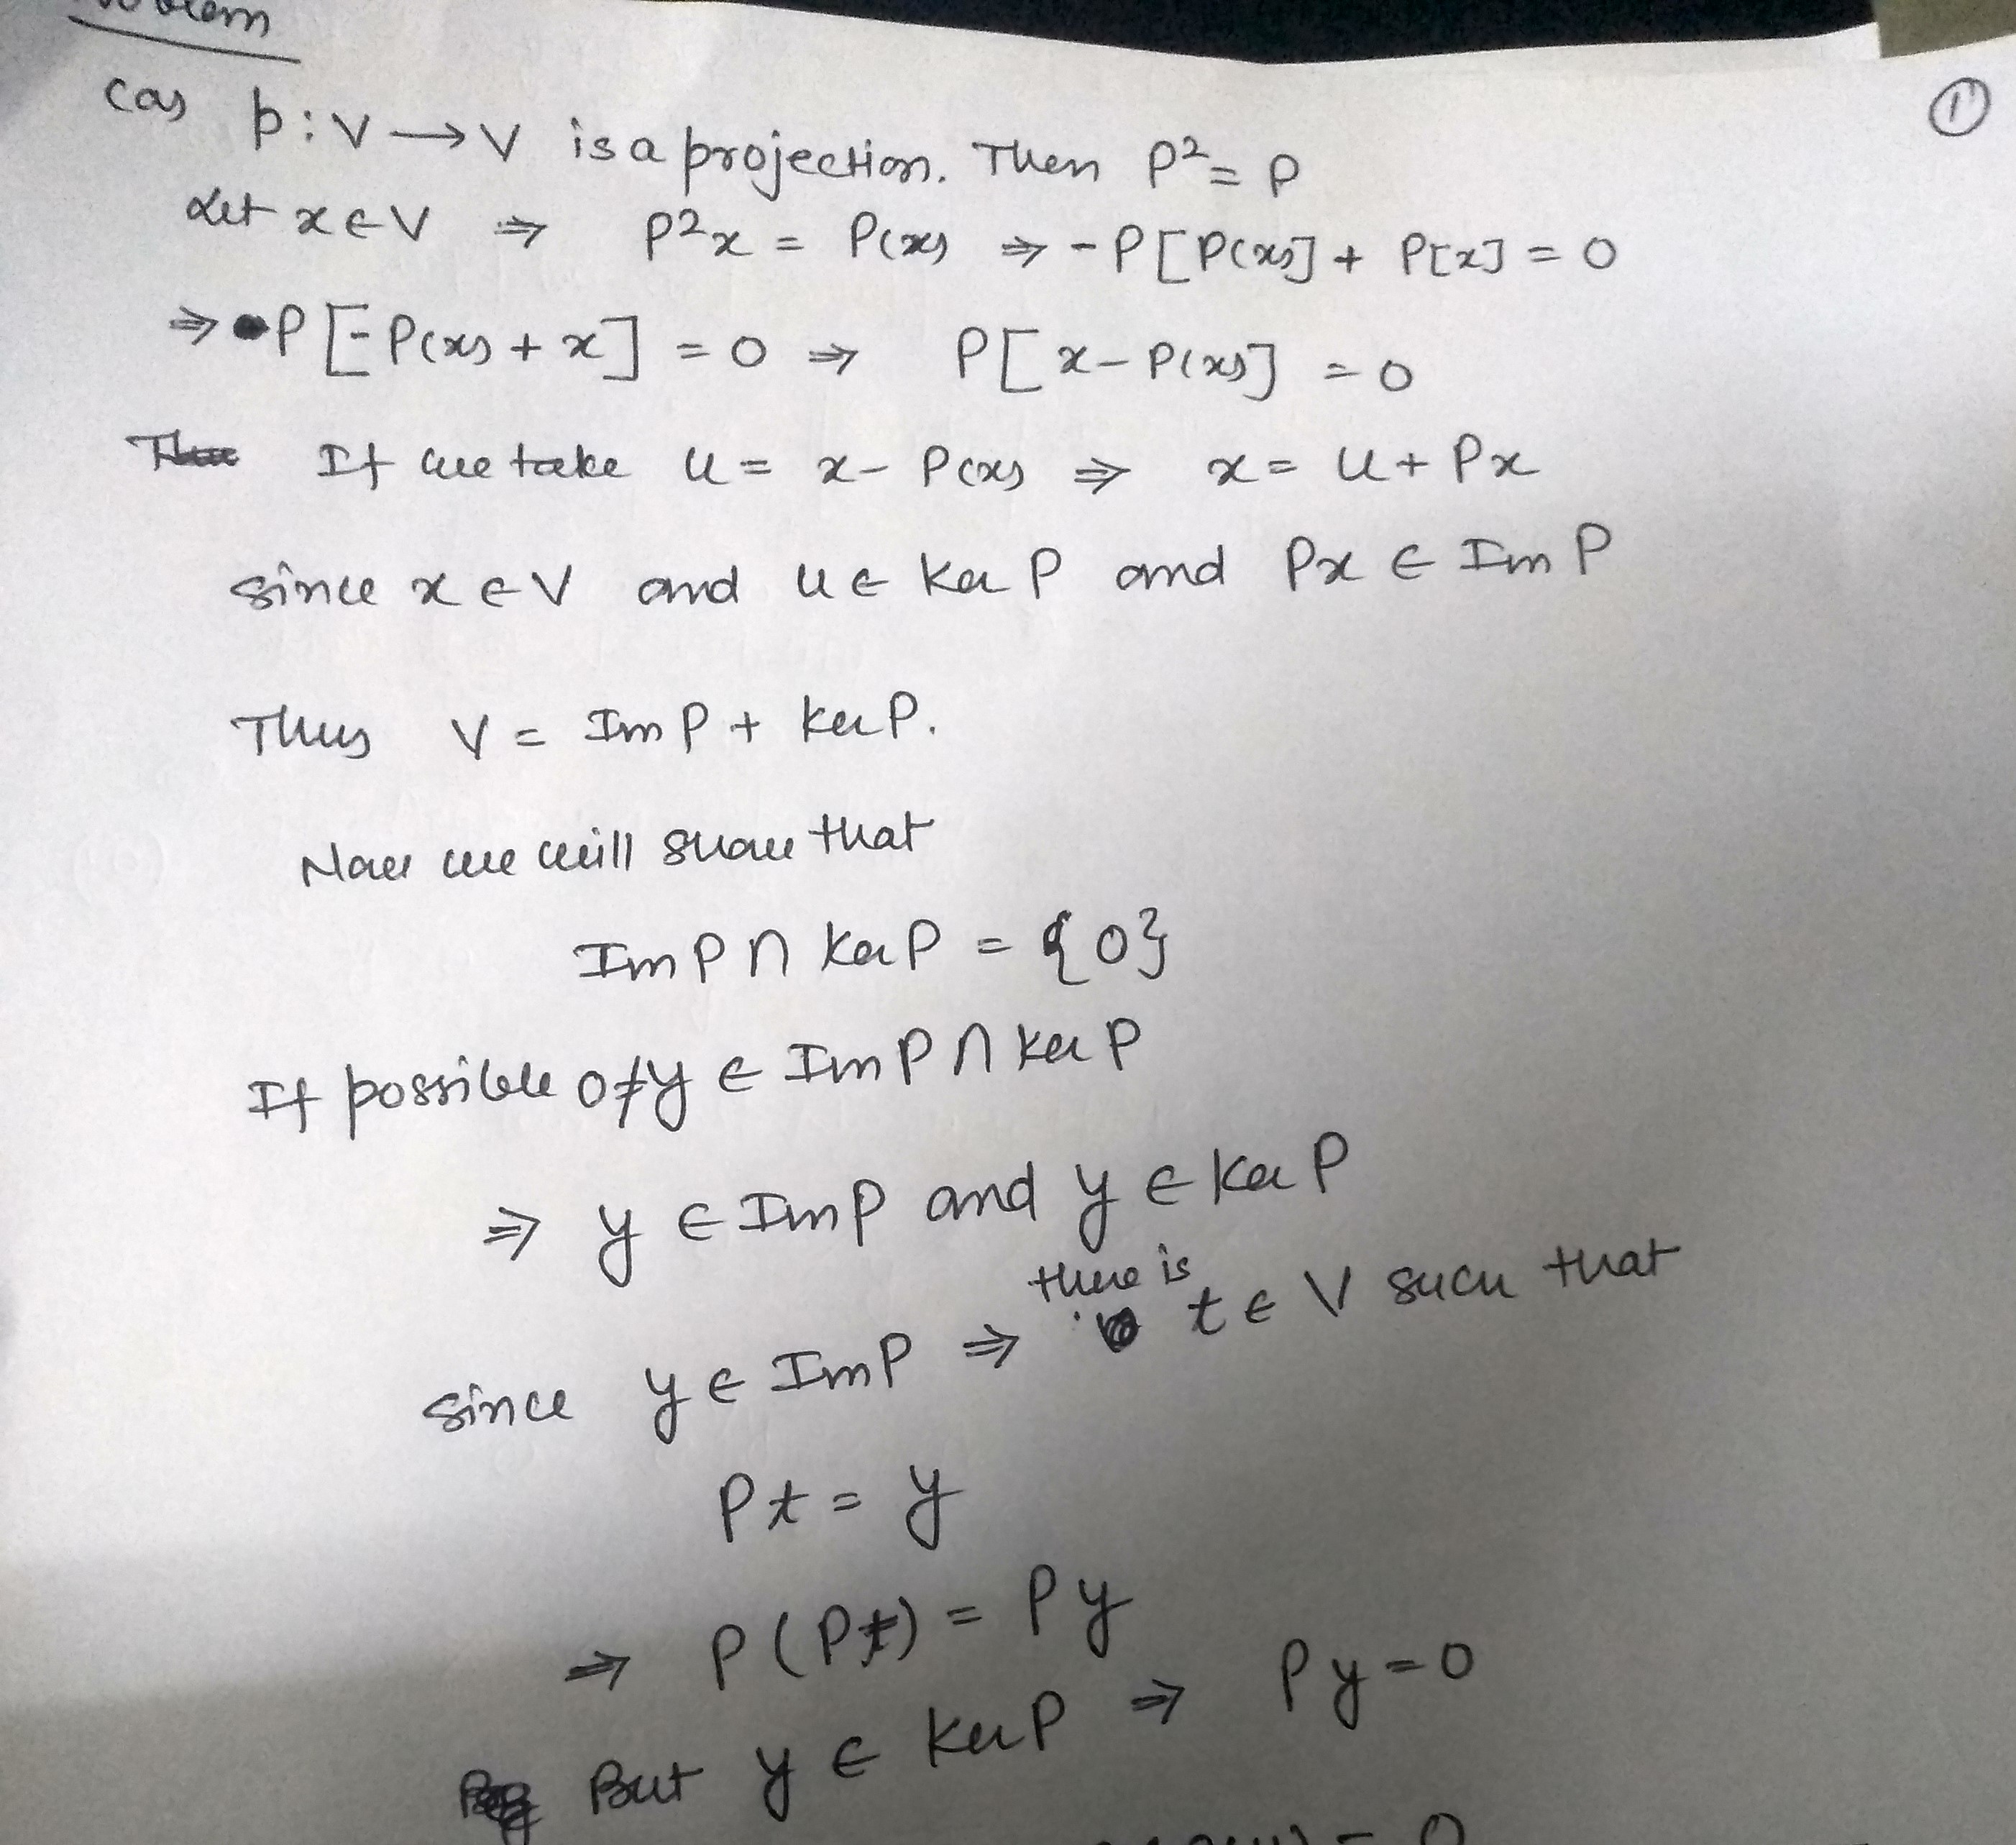 ①
(a) P : V → V is a projection. Then P² = P
Let x ∈ V ⇒ P²x = P(x) ⇒ -P[P(x)] + P[x] = 0
⇒ P[-P(x) + x] = 0 ⇒ P[x - P(x)] = 0
If we take u = x - P(x) ⇒ x = u + Px
since x ∈ V and u ∈ Ker P and Px ∈ Im P
Thus V = Im P + Ker P.
Now we will show that
Im P ∩ Ker P = {0}
If possible 0 ≠ y ∈ Im P ∩ Ker P
⇒ y ∈ Im P and y ∈ Ker P
since y ∈ Im P ⇒ there is t ∈ V such that
Pt = y
⇒ P(Pt) = Py
But y ∈ Ker P ⇒ Py = 0